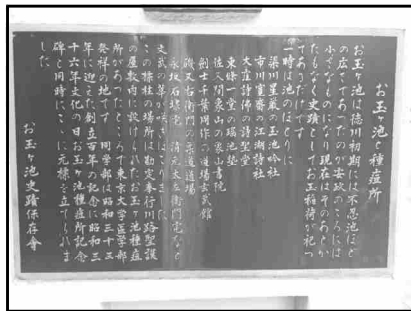 お玉ヶ池と種痘所
お玉ヶ池は徳川初期には不忍池ほど
の広さであったのが安政のころには
小さなものになり現在はそのあとか
たもなく史蹟としてお玉稲荷が祀っ
てあるだけです
一時は池のほとりに
梁川星巌の玉池吟社
市川寛斎の江湖詩社
大窪詩佛の詩聖堂
東條一堂の瑤池塾
佐久間象山の象山書院
剣士千葉周作の道場玄武館
磯又右衛門の柔道道場
永坂石埭宅 清元太兵衛宅など
文武の華が咲きほこりました
この標柱の場所は勘定奉行川路聖謨
の屋敷内に設けられたお玉ヶ池種痘
所があったところで東京大学医学部
発祥の地です 同学部は昭和三十三
年に迎えた創立百年の記念に昭和三
十六年文化の日お玉ヶ池種痘所記念
碑と同時にここに元標を立てられま
した
お玉ヶ池史蹟保存會